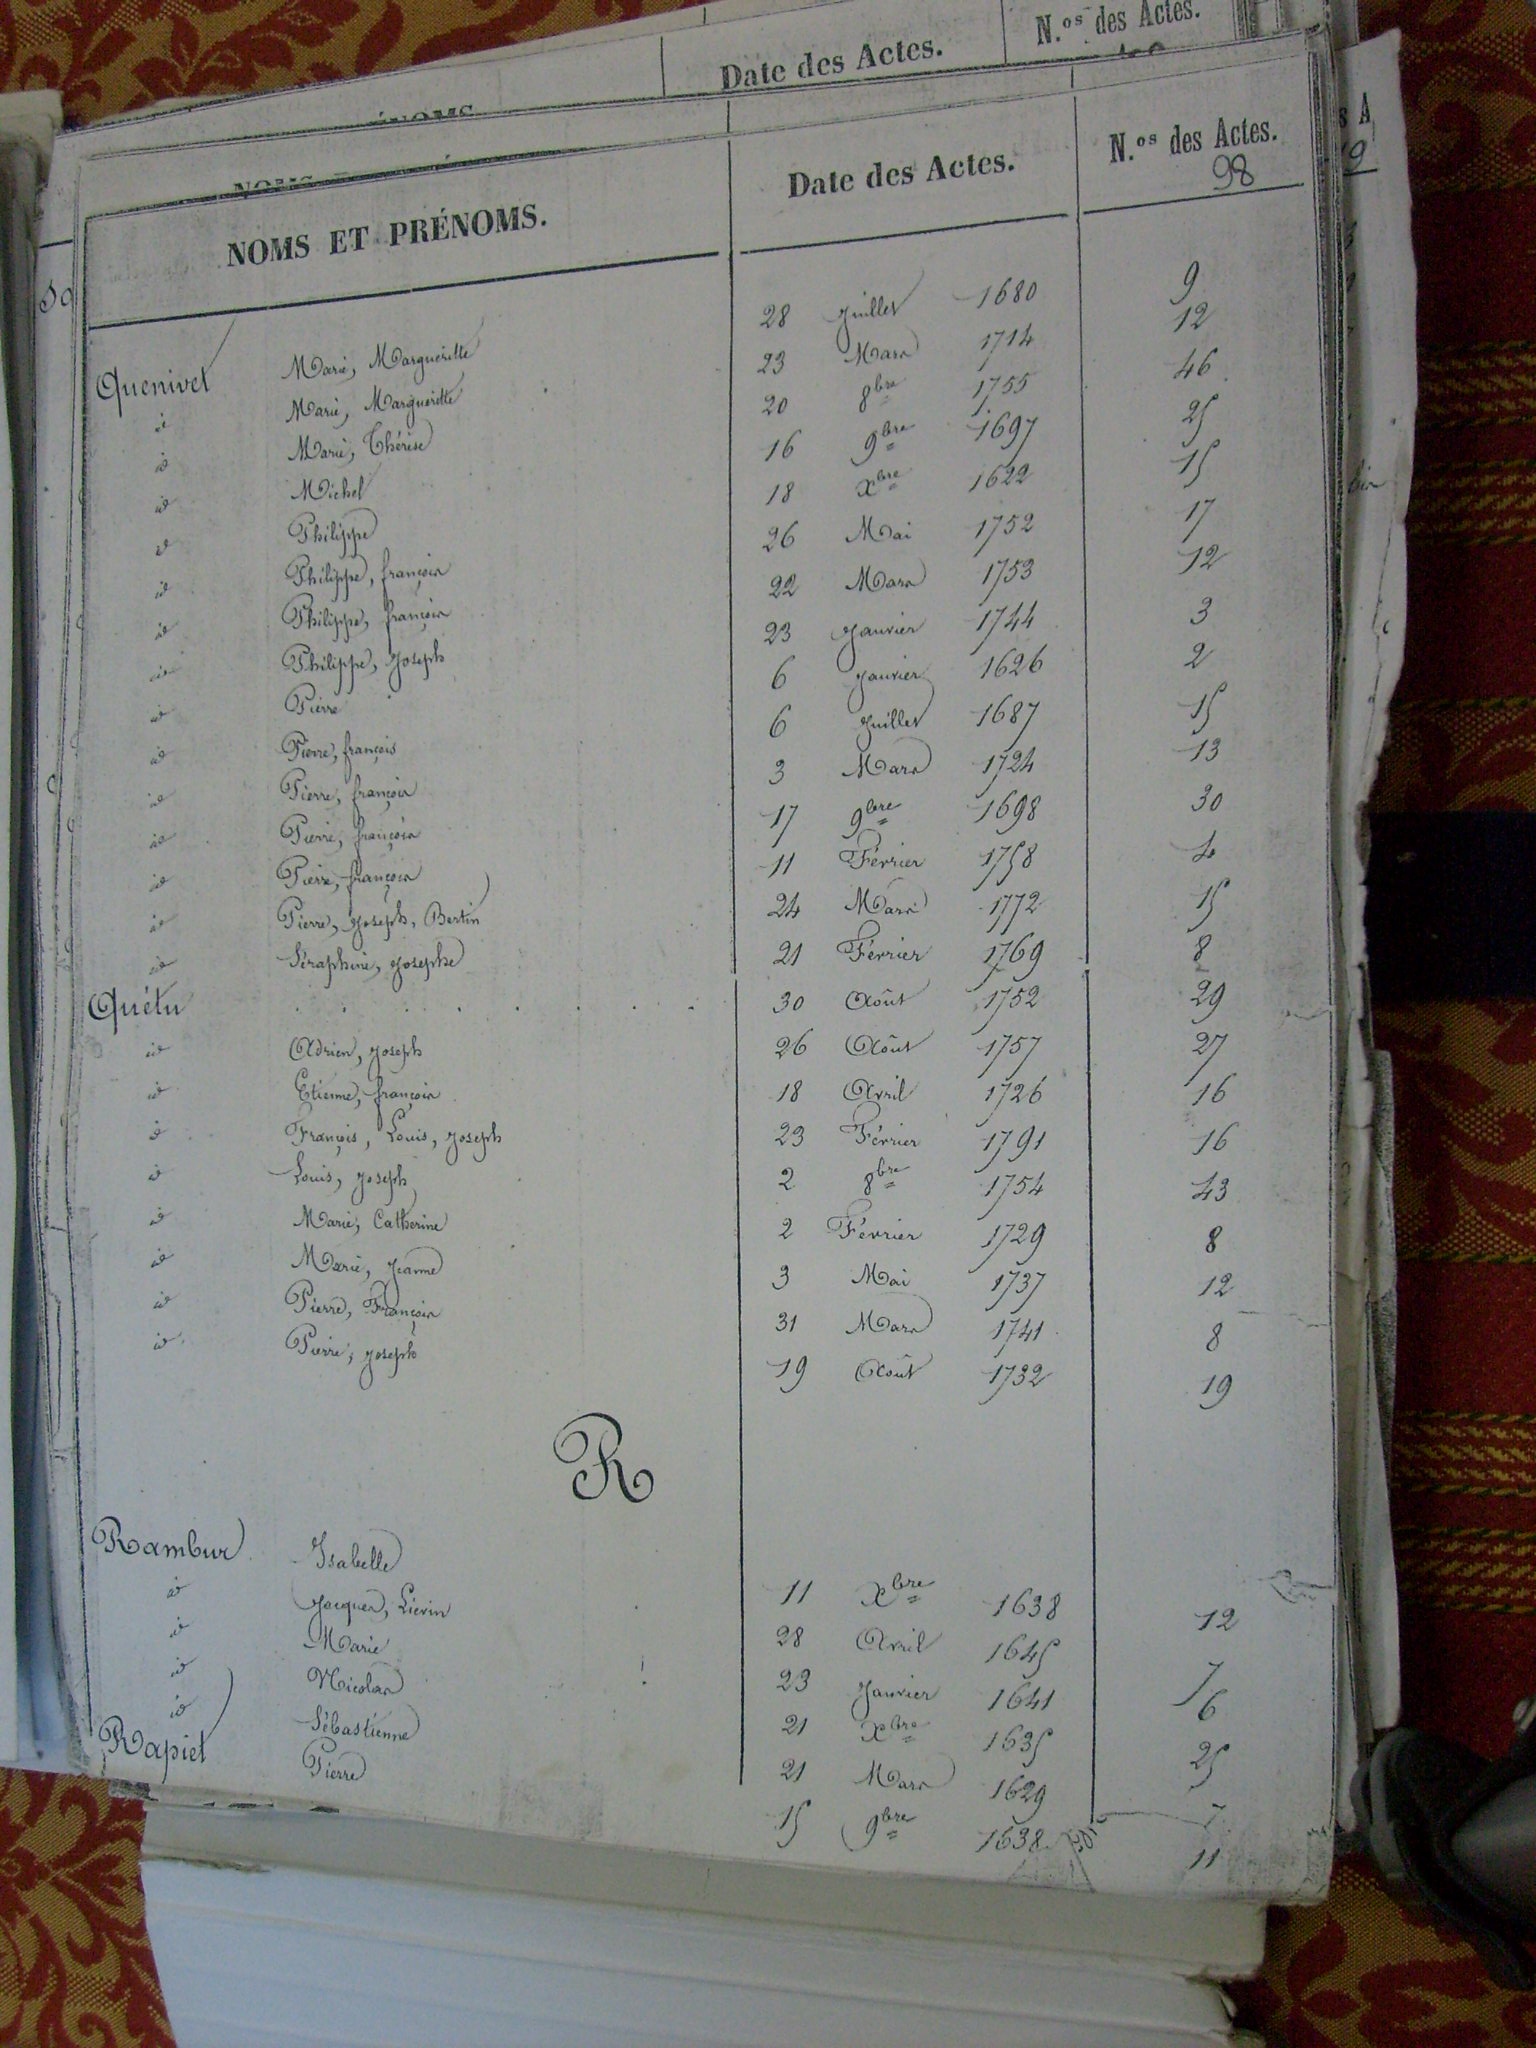 Date des Actes. N.os des Actes.
NOMS ET PRÉNOMS. Date des Actes. N.os des Actes.
98
Quenivet Marie, Marguerite 28 Juillet 1680 9
id Marie, Marguerite 23 Mars 1714 12
id Marie, Thérèse 20 8bre 1755 46
id Michel 16 9bre 1697 25
id Philippe 18 Xbre 1622 15
id Philippe, françois 26 Mai 1752 17
id Philippe, françois 22 Mars 1753 12
id Philippe, Joseph 23 Janvier 1744 3
id Pierre 6 Janvier 1626 2
id Pierre, françois 6 Juillet 1687 15
id Pierre, françois 3 Mars 1724 13
id Pierre, françois 17 9bre 1698 30
id Pierre, françois 11 Février 1758 4
id Pierre, Joseph, Bertin 24 Mars 1772 15
id Séraphine, Josephe 21 Février 1769 8
Quétu . . . . . . . . 30 Août 1752 29
id Adrien, Joseph 26 Août 1757 27
id Etienne, françois 18 Avril 1726 16
id François, Louis, Joseph 23 Février 1791 16
id Louis, Joseph 2 8bre 1754 43
id Marie, Catherine 2 Février 1729 8
id Marie, Jeanne 3 Mai 1737 12
id Pierre, François 31 Mars 1741 8
id Pierre, Joseph 19 Août 1732 19
R
Rambur Isabelle 11 Xbre 1638 12
id Jacques, Liévin 28 Avril 1645 7
id Marie 23 Janvier 1641 6
id Nicolas 21 Xbre 1635 25
id Sébastienne 21 Mars 1629 7
Rapiet Pierre 15 9bre 1638 11